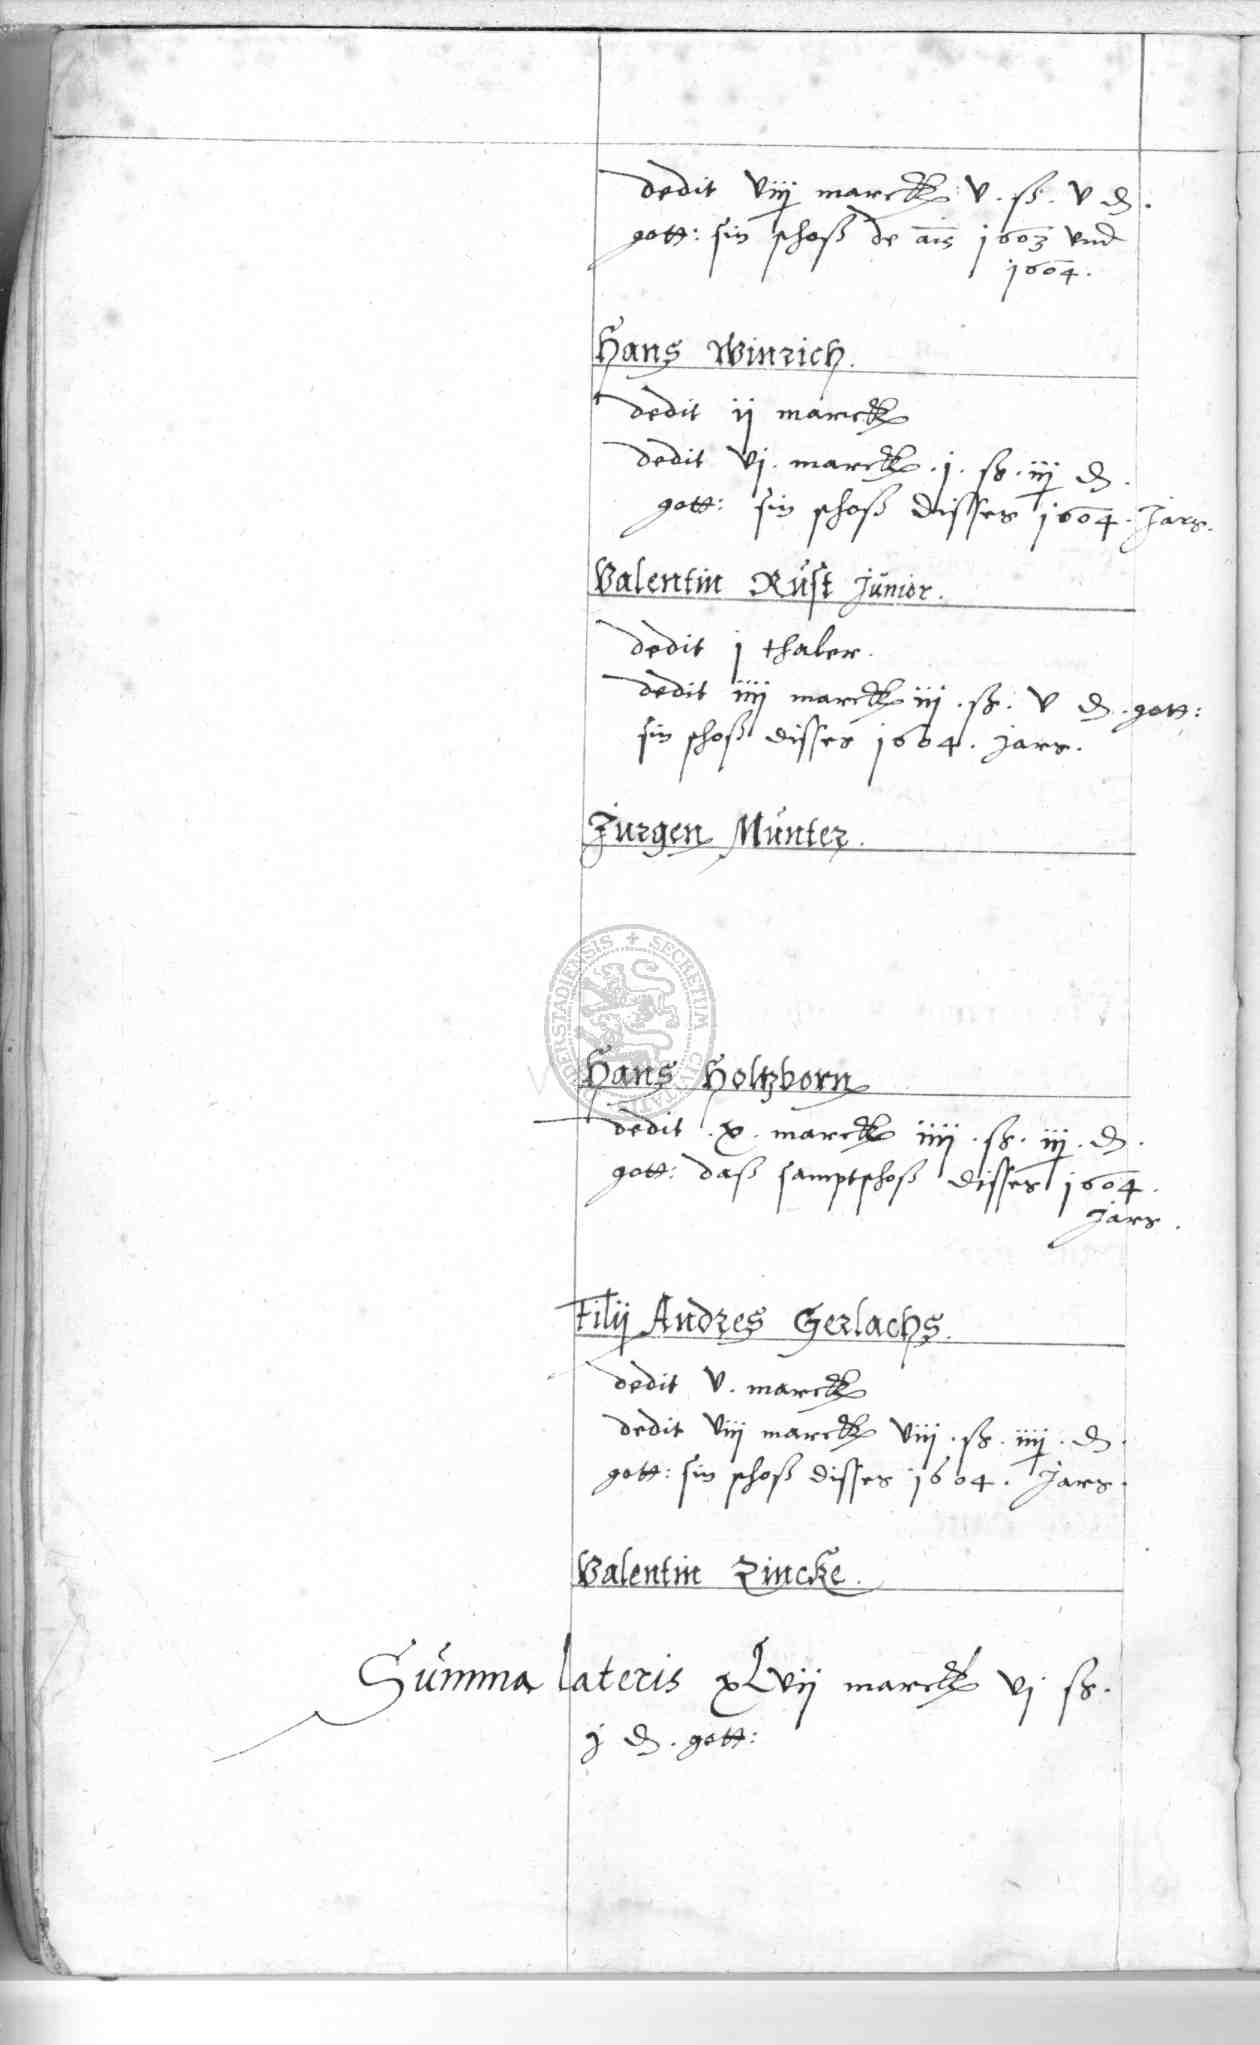 dedit viij marck v. ß. v d.
gott: sin schoß de ais 1603 vnd
1604.
Hans Winrich.
dedit ij marck
dedit vj. marck. j. ß. iij d.
gott: sin schoß disses 1604. Jars.
Valentin Rust Junior.
dedit j thaler.
dedit iiij marck iij. ß. v d. gott:
sin schoß disses 1604. Jars.
Jurgen Munter.
SECRETUM CIVITATIS DUDERSTADIENSIS
Hans Holtzborn
dedit. x. marck iiij. ß. iij. d.
gott: daß samptschoß disses 1604.
Jars.
Filij Andres Gerlachs.
dedit v. marck
dedit viij marck viij. ß. iiij. d.
gott: sin schoß disses 1604. Jars.
Valentin Zincke.
Summa lateris xLvij marck vj ß.
j d. gott: